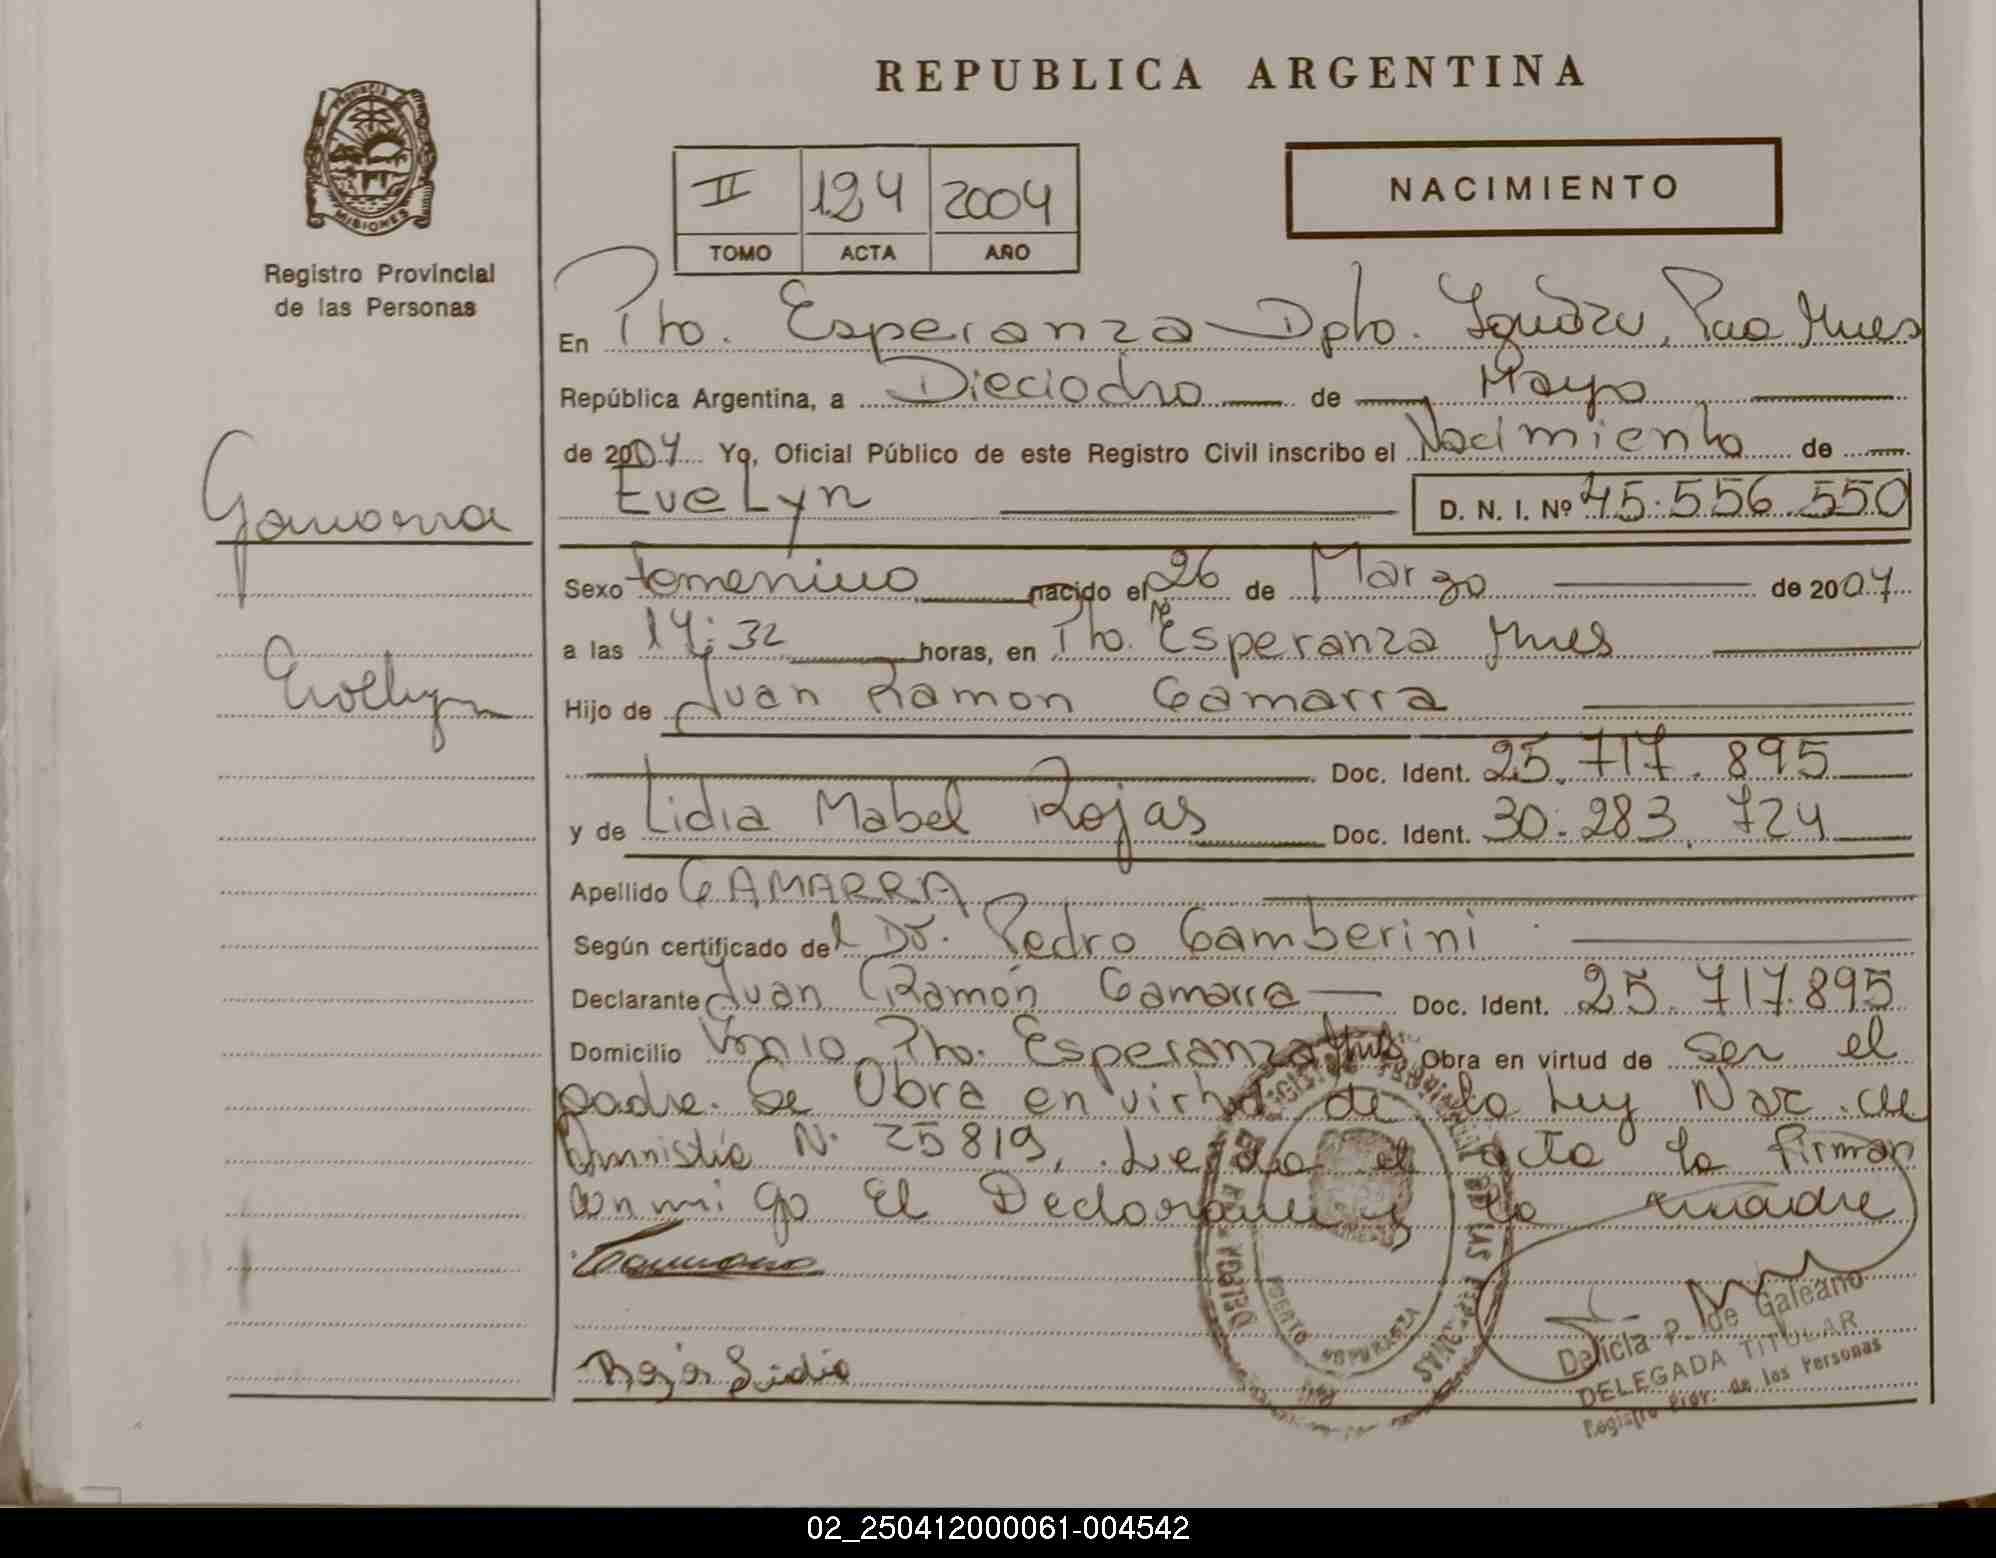 PROVINCIA DE
MISIONES
Registro Provincial
de las Personas
Gamarra
Evelyn
REPUBLICA ARGENTINA
II 124 2004
TOMO ACTA AÑO
NACIMIENTO
En Pto. Esperanza Dpto. Iguazu, Pcia Mnes
República Argentina, a Dieciocho de Mayo
de 2004 Yo, Oficial Público de este Registro Civil inscribo el Nacimiento de
Evelyn D. N. I. Nº 45.556.550
Sexo Femenino nacido el 26 de Marzo de 2004
a las 14:32 horas, en Pto. Esperanza Mnes
Hijo de Juan Ramon Gamarra
Doc. Ident. 25.717.895
y de Lidia Mabel Rojas Doc. Ident. 30.283.724
Apellido GAMARRA
Según certificado del Dr. Pedro Gamberini
Declarante Juan Ramón Gamarra Doc. Ident. 25.717.895
Domicilio Pto. Esperanza Mnes Obra en virtud de ser el
padre. Se Obra en virtud de la Ley Nac. de
Amnistia N. 25819, Leida el acta la firman
conmigo El Declarante y la madre
Gamarra
Rojas Lidia
REGISTRO PROVINCIAL DE LAS PERSONAS
PUERTO ESPERANZA
Delicia P. de Galeano
DELEGADA TITULAR
Registro Prov. de las Personas
02_250412000061-004542